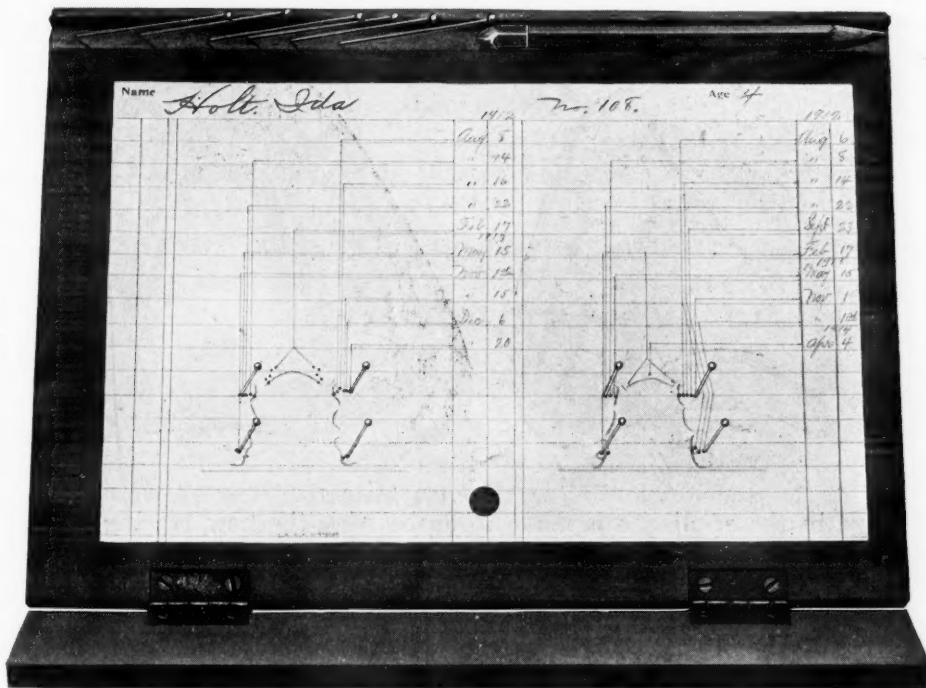 Name Holt. Ida No. 108. Age 4
1912
Aug 5
" 14
" 16
" 22
Feb 17
1913
May 15
Nov 1st
" 15
Dec 6
" 20
Aug 6
" 8
" 14
" 22
Sept 23
Feb 17
1913
May 15
Nov 1
" 1st
1914
Apr 4